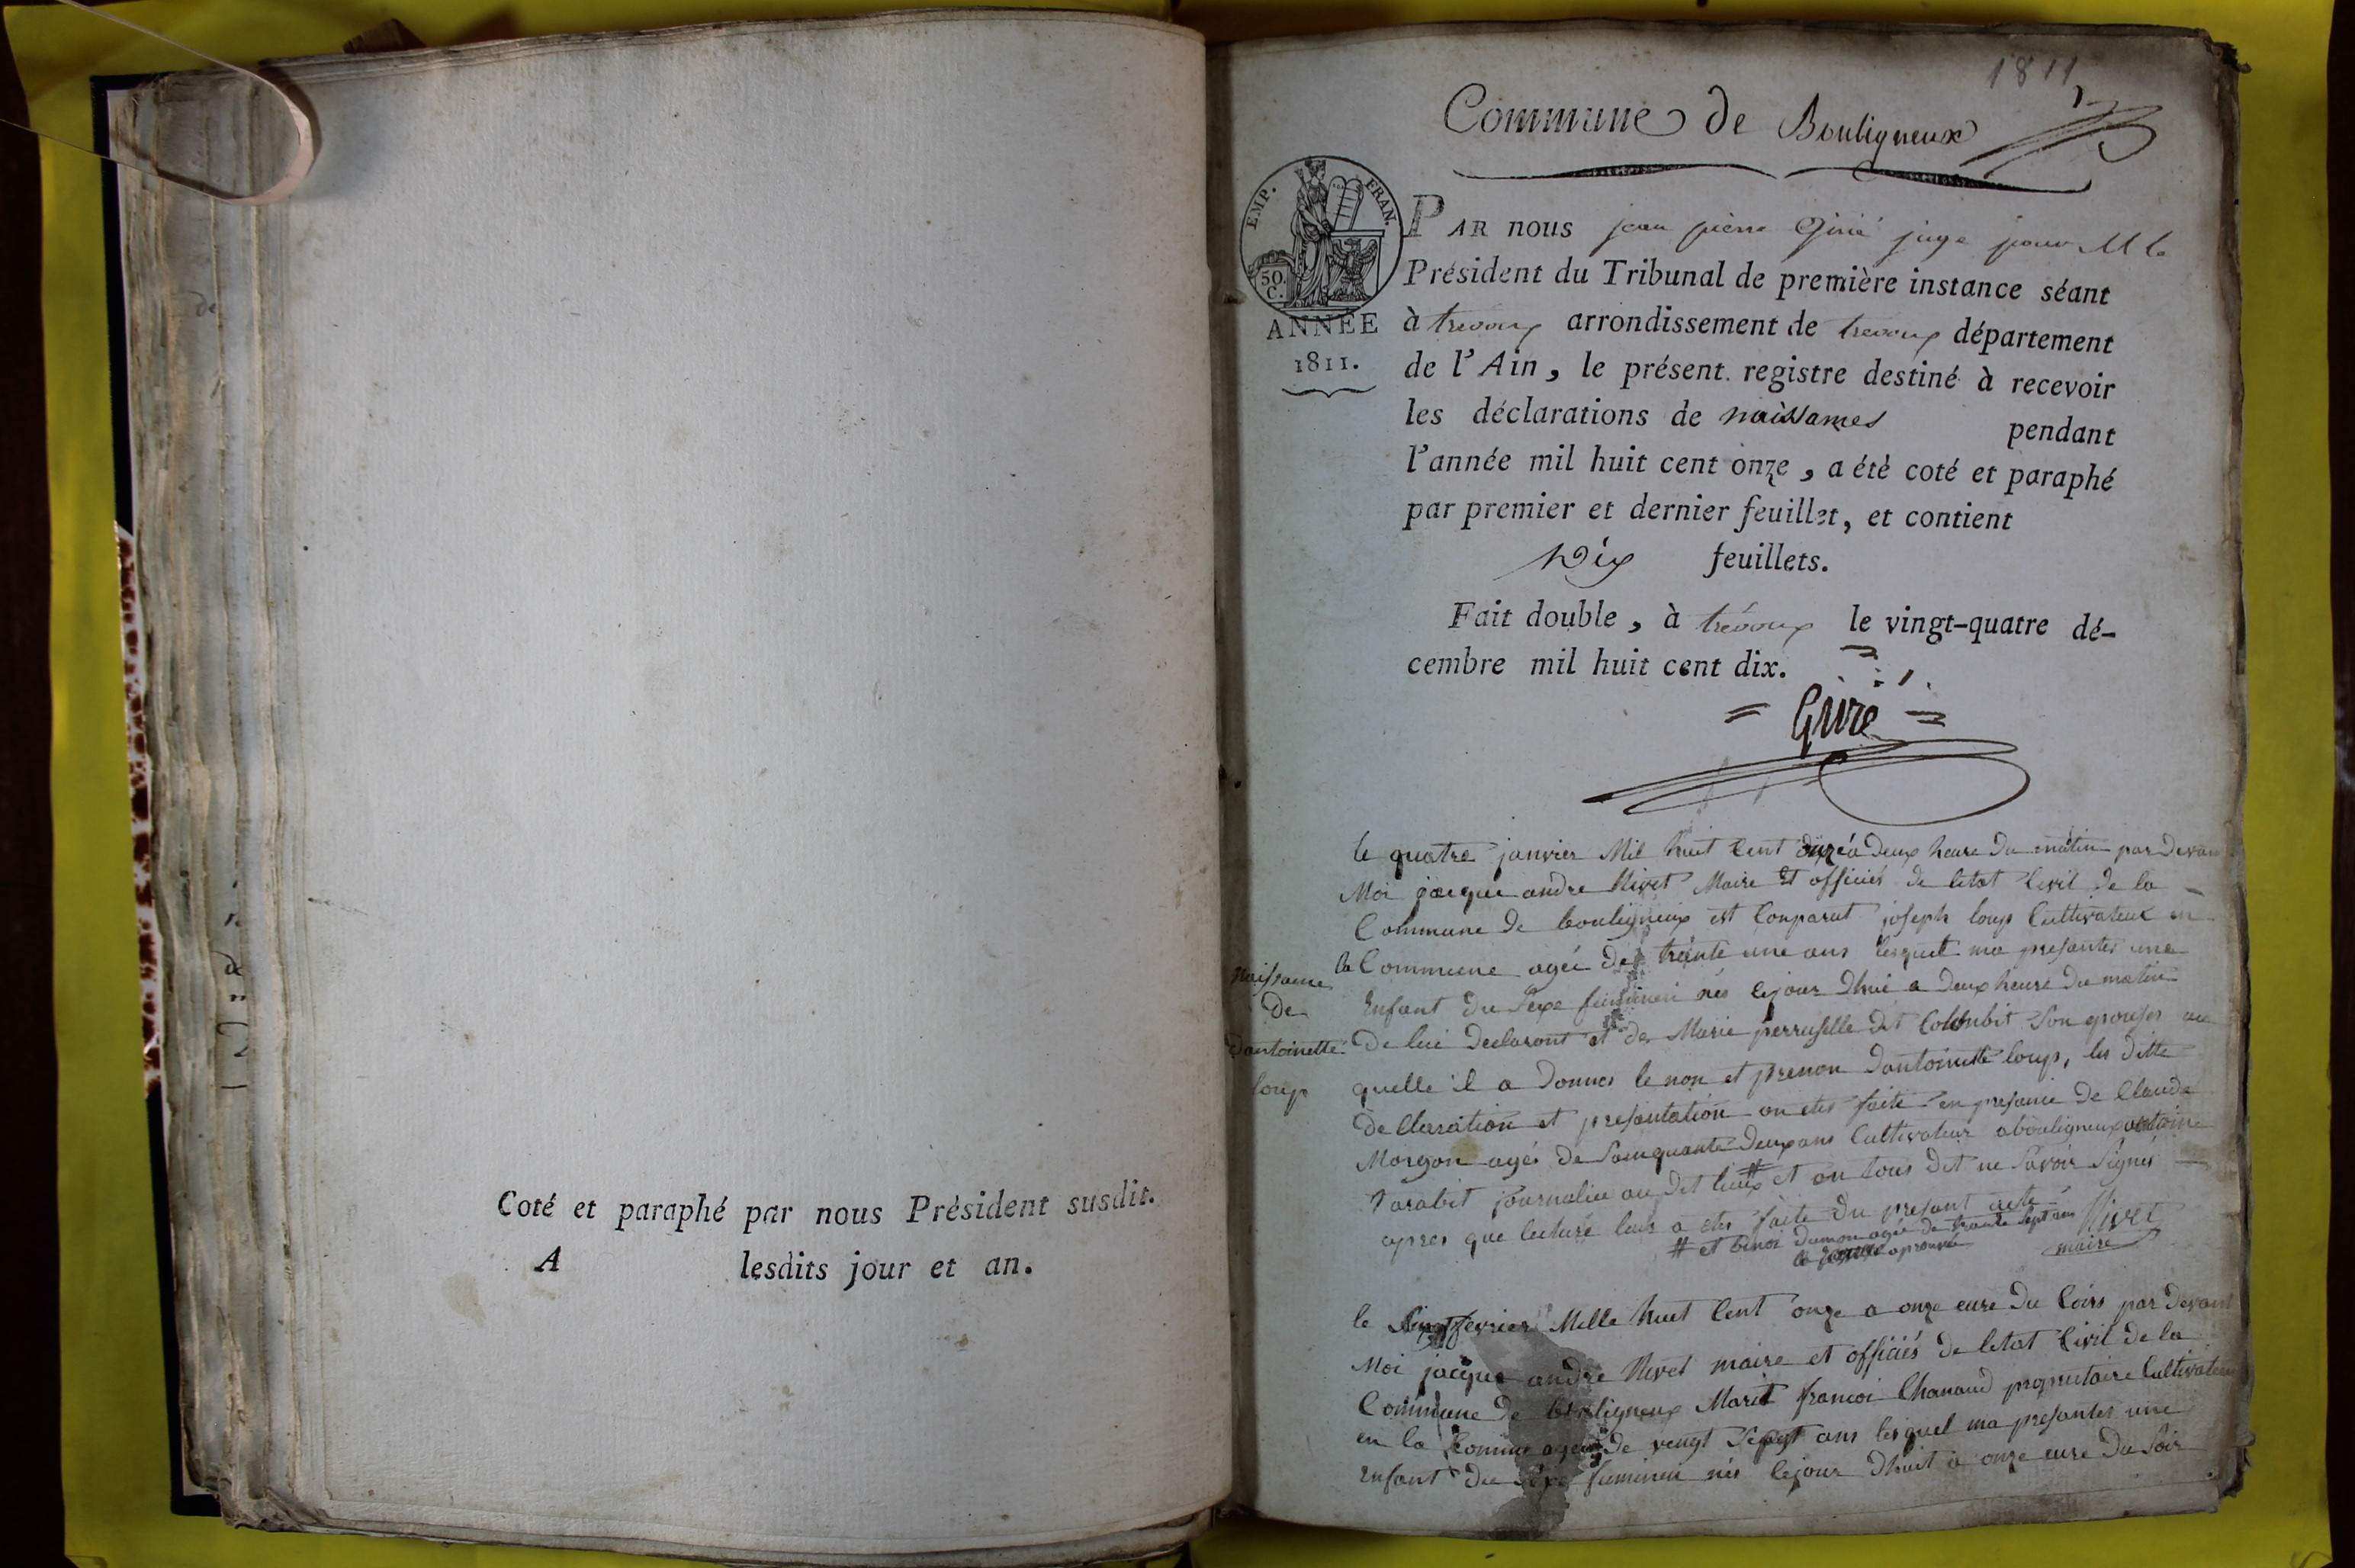 Coté et paraphé par nous Président susdit.
A lesdits jour et an.
1811
Commune de Bouligneux
EMP. FRAN.
50. C.
ANNÉE
1811.
PAR nous jean pierre Giré juge pour M le
Président du Tribunal de première instance séant
à trevoux arrondissement de trevoux département
de l'Ain, le présent registre destiné à recevoir
les déclarations de naissances pendant
l'année mil huit cent onze, a été coté et paraphé
par premier et dernier feuillet, et contient
Dix feuillets.
Fait double, à trévoux le vingt-quatre dé-
cembre mil huit cent dix.
Giré
le quatre janvier Mil huit Cent onze a deux heure du matin par devan
Moi jacque andre Nivet Maire Et officiés de letat Civil de la
Commune de bouligneux est Conparut joseph loup Cultivateur en
la Commune agéé de trente une ans lesquel ma presantés une
Naissance
de
dantoinette
loup
Enfant du Sexe feminin nés lejour dhui a deux heure du matin
de lui declaront et de Marie perruselle dit Colonbit Son epouses au
quelle il a donnés le non et prenon dantoinette loup, les ditte
declaration et presantation on etes faite en presance de Claude
Morgon agés de Sainquante deux ans Cultivateur a bouligneux antoine
tarabit journalier au dit lieux # et on tous dit ne Savoir Signés
apres que lecture leur a etes faite du presant acte
# et benoi dumon agée de trante Sept ans
aprouvé
Nivet
maire
le fevrier Mille huit Cent onze a onze eure du Soirs par devant
Moi jacque andre Nivet maire et officiés de letat Civil de la
Commune de bouligneux Marit francoi Chanaud propriutaire Cultivateur
en la Commune de vengt Sept ans lesquel ma presantés une
Enfant du Sexe feminin nés lejour dhuit a onze eure du Soir